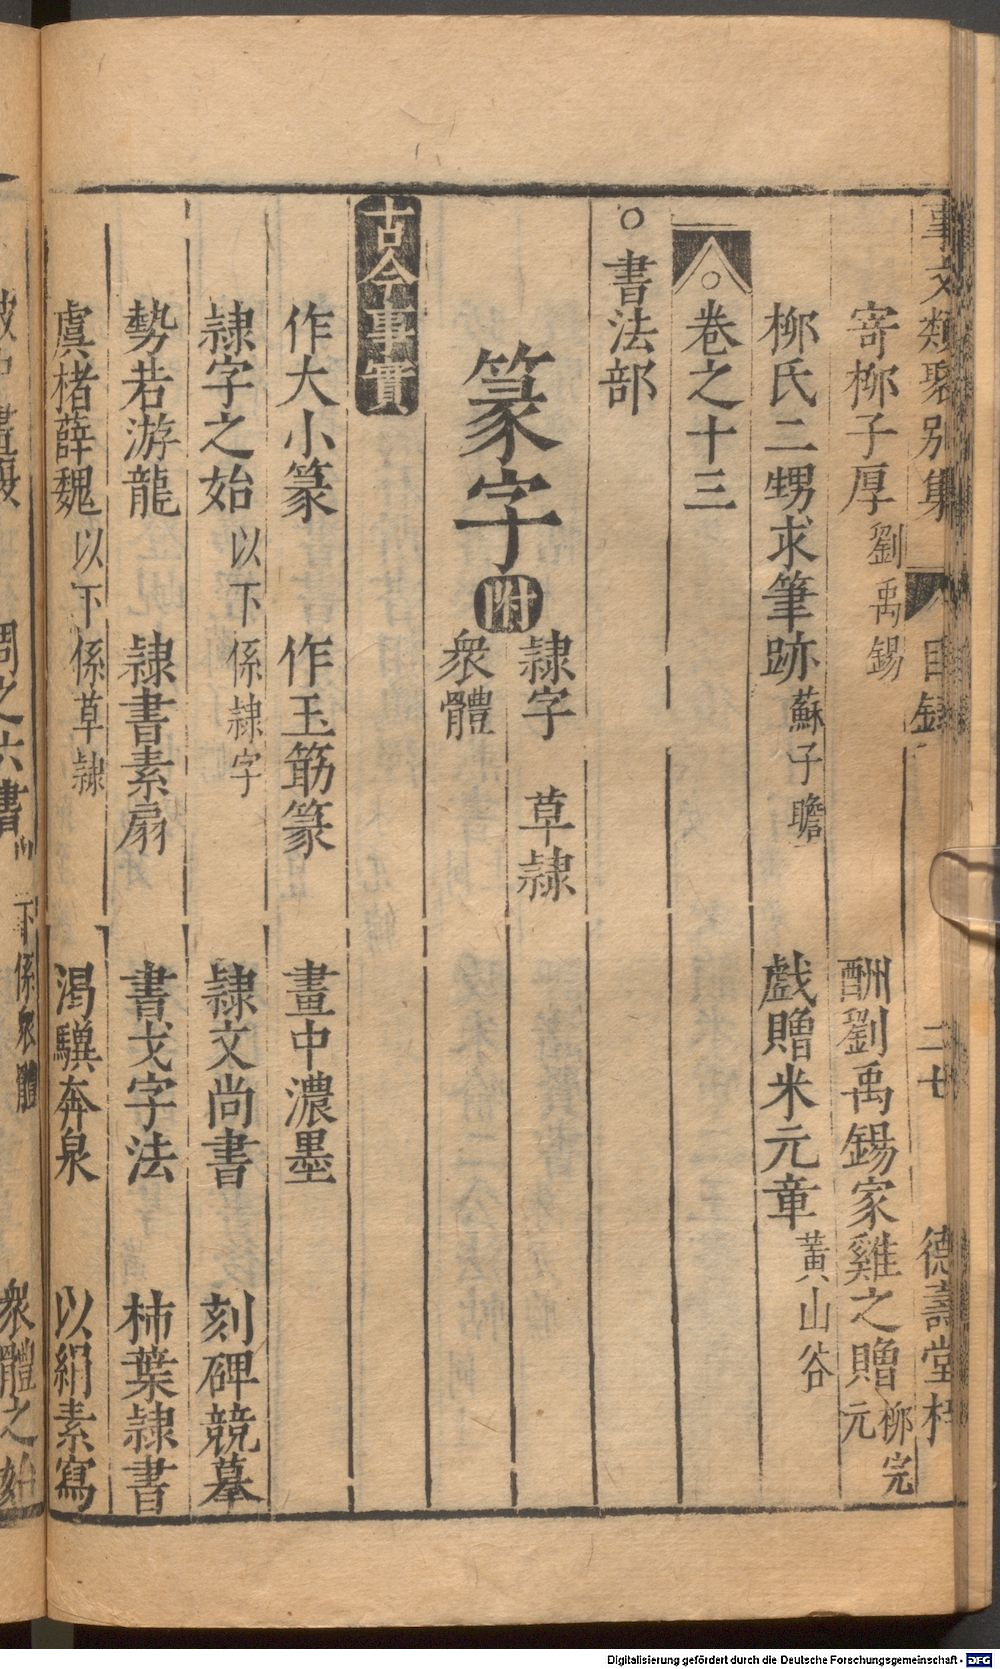 事文類聚别集 目錄 二七 德壽堂梓
寄柳子厚 劉禹錫 酬劉禹錫家雞之贈 柳完元
柳氏二甥求筆跡 蘇子瞻 戲贈米元章 黃山谷
卷之十三
○書法部
篆字 附 隷字 草隷 衆體
古今事實
作大小篆 作玉筯篆 畫中濃墨
隷字之始 以下係隷字 隷文尚書 刻碑競摹
勢若游龍 隷書素扇 書戈字法 柿葉隷書
虞楮薛魏 以下係草隷 渴驥奔泉 以絹素寫
周之六書 下係衆體 衆體之始
Digitalisierung gefördert durch die Deutsche Forschungsgemeinschaft - DFG